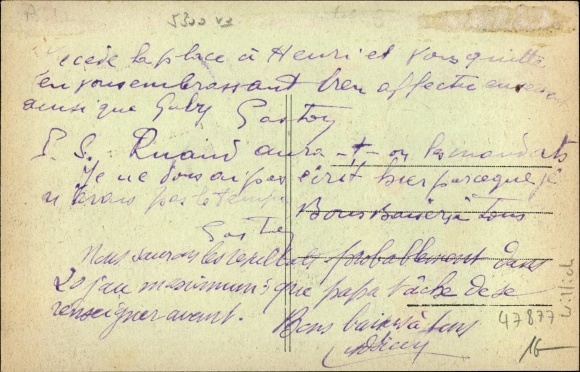 5300
cède la place à Henri et vous quitte
en vous embrassant bien affectueusement
ainsi que Gaby Gaston
P. S. Quand aura-t-on les mandats
Je ne vous ai pas écrit hier parce que je
n'avais pas le temps
Bons Baisers à tous
Gaston
Nous saurons les résultats probablement dans
20 j au maximum, que papa tâche de se
renseigner avant.
Bons baisers à tous
47877
Willich
16